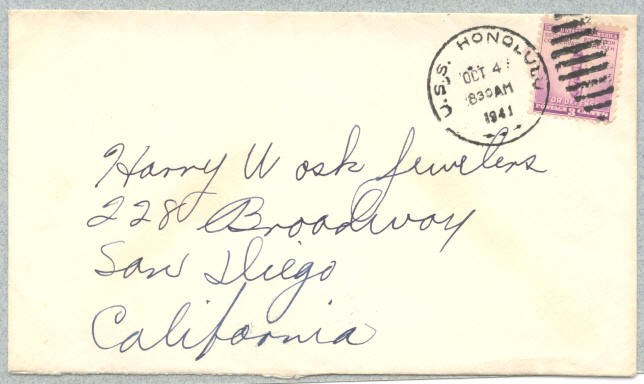 U.S.S. HONOLULU
OCT 4
830AM
1941
FOR DEFENSE
POSTAGE 3 CENTS
Harry W osk Jewelers
228 Broadway
San Diego
California